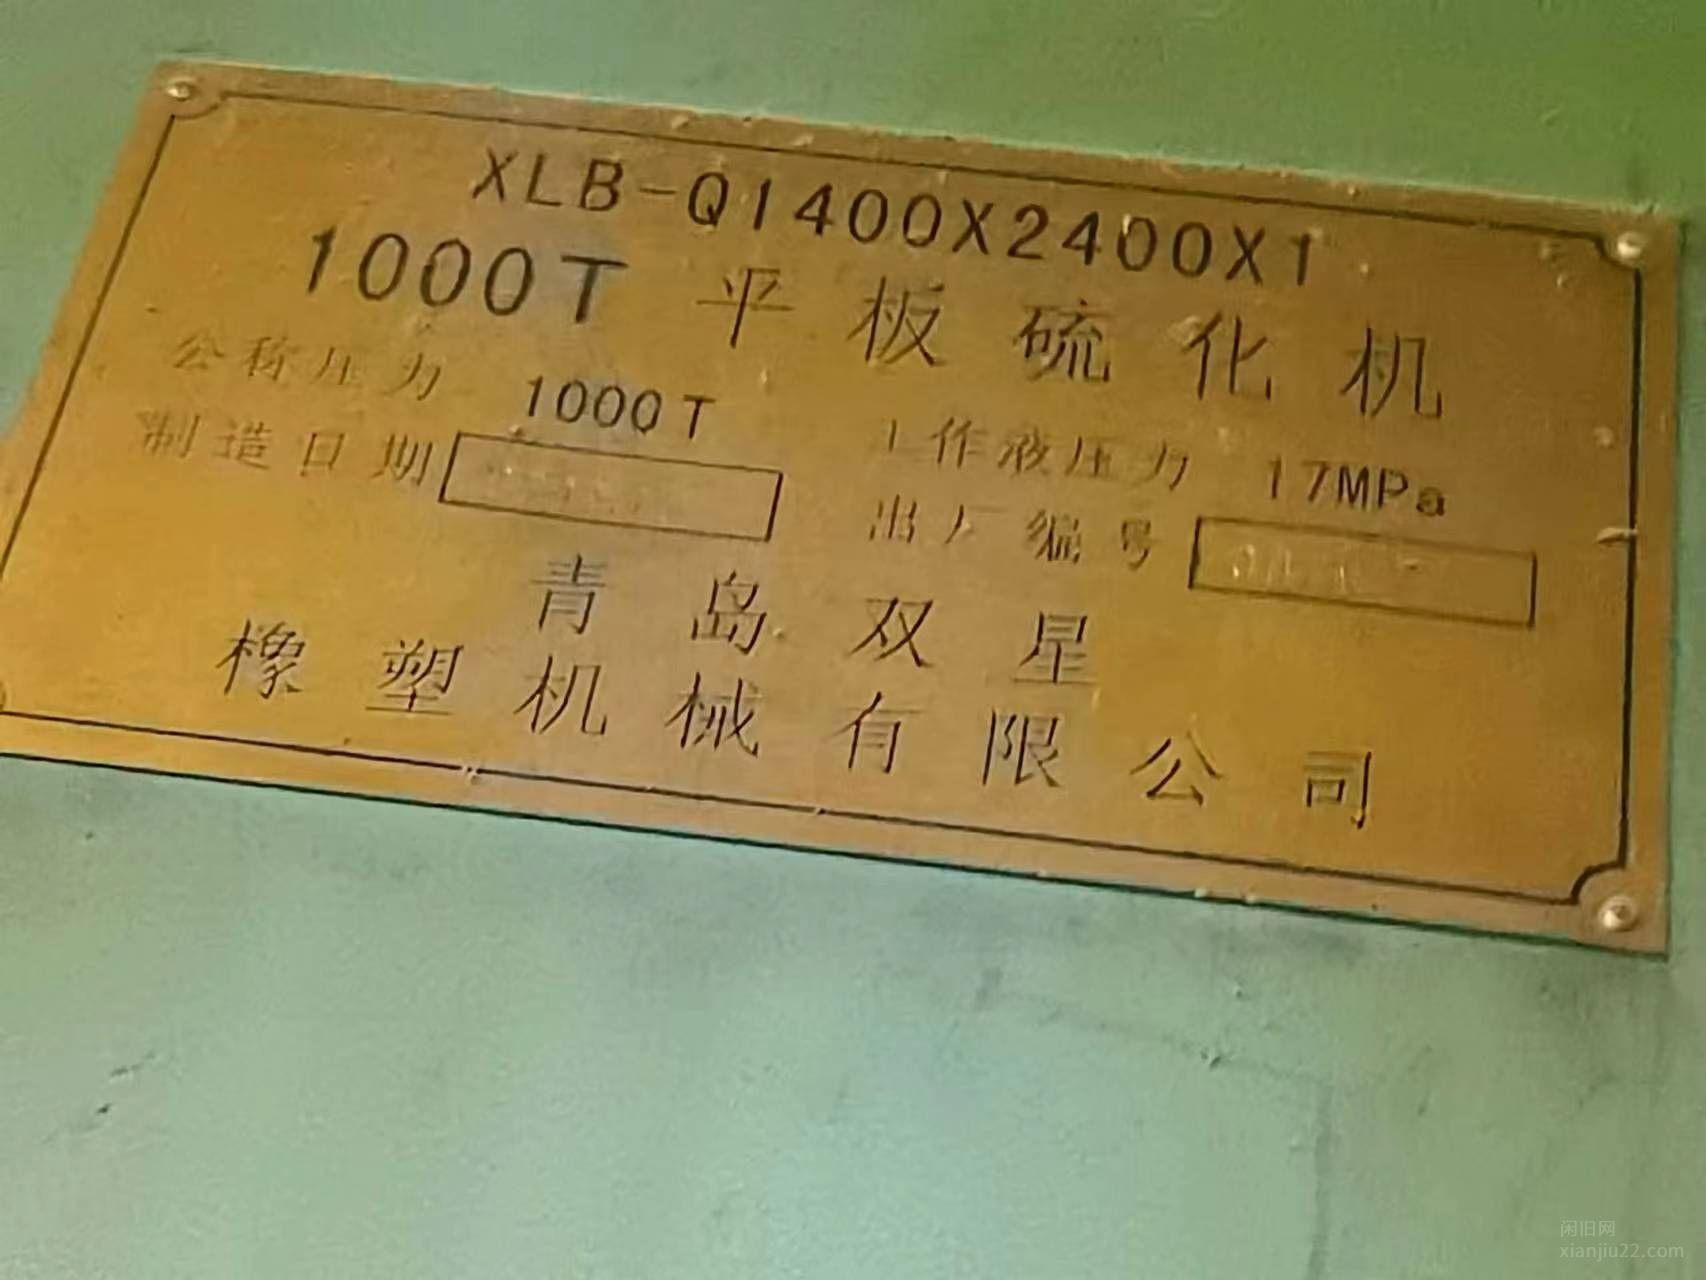 XLB-Q1400X2400X1
1000T 平板硫化机
公称压力 1000T 工作液压力 17MPa
制造日期 出厂编号
青岛双星
橡塑机械有限公司
闲旧网
xianjiu22.com